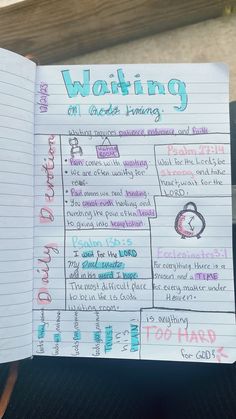 12/21/23
Waiting
on God's timing.
Waiting requires patience, endurance, and faith.
Daily Devotion
Pain comes with waiting.
We are often waiting for
Pain means we need healing.
You cannot rush healing and
numbing the pain often leads
to giving into temptation
Psalm 27:14
Wait for the Lord; be
strong, and take
heart; wait for the
LORD.
Psalm 130:5
I wait for the LORD
My soul waits
and in his word I hope
The most difficult place
to be in life is Gods
waiting room.
Ecclesiastes 3:1
For everything there is a
season and a TIME
for every matter under
Heaven.
TRUST
in
his
PLAN!
is anything
TOO HARD
for GOD?